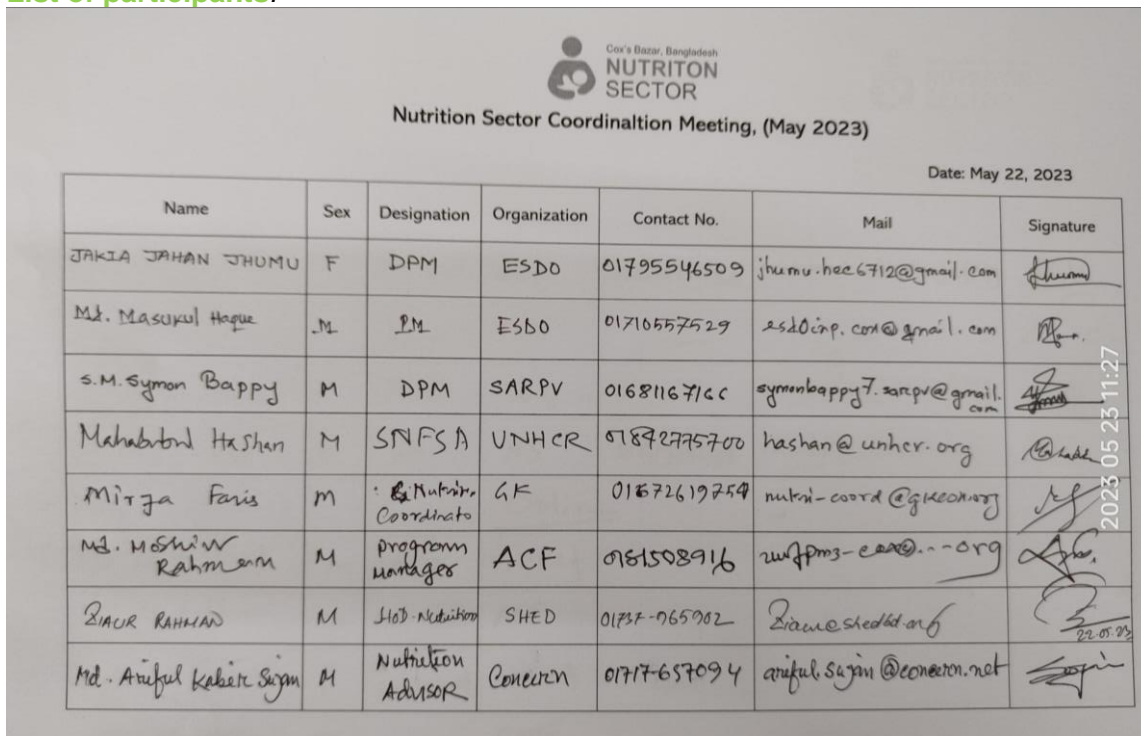 List of participants:
Cox's Bazar, Bangladesh
NUTRITON
SECTOR
Nutrition Sector Coordinaltion Meeting, (May 2023)
Date: May 22, 2023
Name Sex Designation Organization Contact No. Mail Signature
JAKIA JAHAN JHUMU F DPM ESDO 01795546509 jhumu.hec6712@gmail.com
Md. Masukul Haque M PM ESDO 01710557529
S.M. Symon Bappy M DPM SARPV 01681167166 symonbappy7.sarpv@gmail.com
Hashan M SNFSA UNHCR 01842775700 hashan@unhcr.org
Mirza Faris M GK
Md. Moshiur Rahman M Program Manager ACF 0181508916
ZIAUR RAHMAN M HoD-Nutrition SHED 22.05.23
Md. Ariful Kabir Sujan M Nutrition ADVISOR Concern 01717-657094 ariful.sujan@concern.net
2023 05 23 11:27